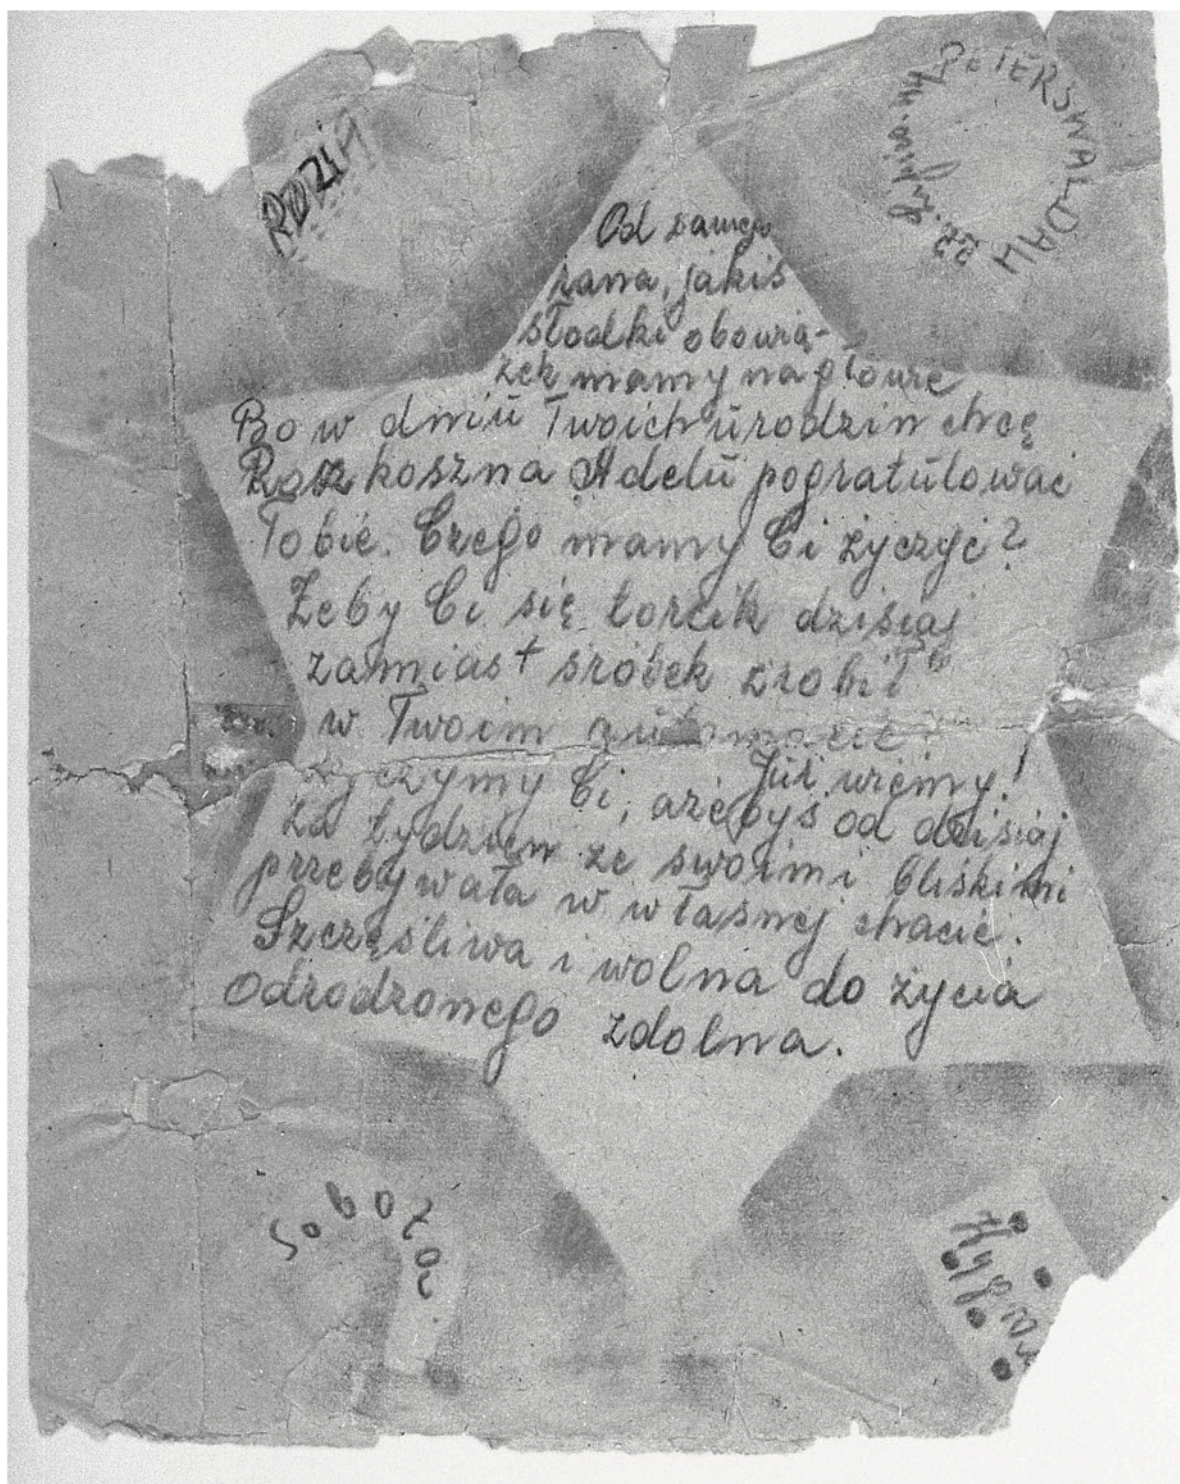 RÓZIA
PETERSWALDAU
22. lipiec. 44
Od samego
rana, jakiś
słodki obowią-
zek mamy na głowie
Bo w dniu Twoich urodzin chcę
Rozkoszna Adelu pogratulować
Tobie. Czego mamy Ci życzyć?
Żeby Ci się torcik dzisiaj
zamiast śróbek zrobił
w Twoim automacie?
Już wiemy!
Życzymy Ci, ażebyś od dzisiaj
za tydzień ze swoimi bliskimi
przebywała w własnej chacie.
Szczęśliwa i wolna do życia
odrodzonego zdolna.
Sobota